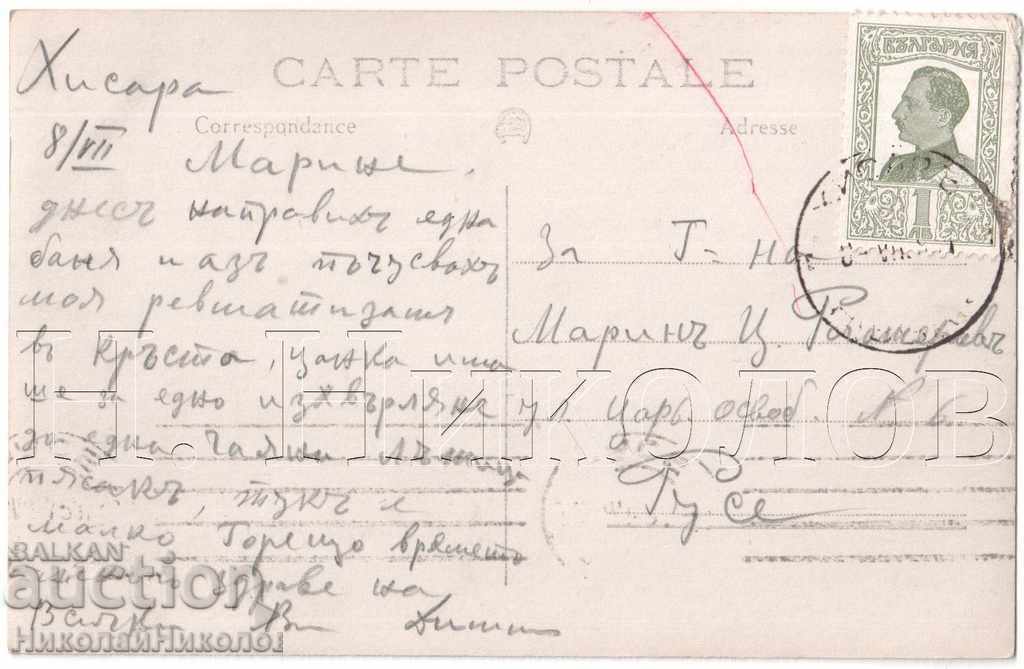 CARTE POSTALE
Correspondance
Adresse
БЪЛГАРИЯ
1 1
ЛВ
Хисара
8/VII Марине.
днесъ направихъ една
баня и азъ
моя ревматизамъ
въ кръста, цанка има
ше за едно изхвърляне
до една чаяна лъжица
пясакъ, тукъ е
малко Горещо времето
здраве на
Всички Ви
За Г-на
Маринъ Ц.
ул Царь Освоб. N 6
Русе
Н. НИКОЛОВ
BALKAN
auction
НиколайНиколов